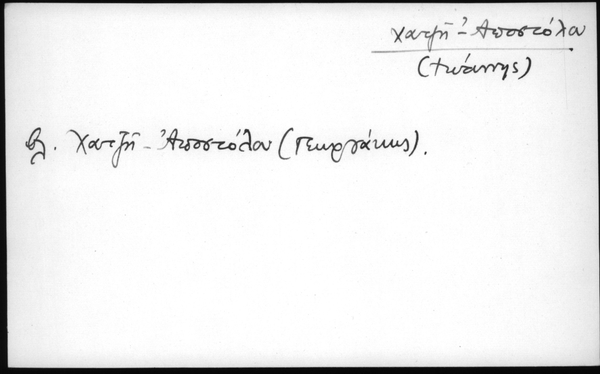 Χατζῆ-Ἀποστόλου
(Ἰωάννης)
βλ. Χατζῆ-Ἀποστόλου (Γεωργάκης).